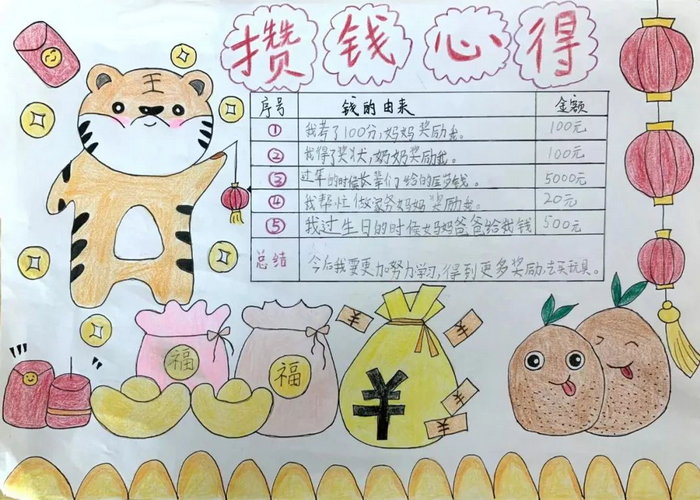 攒钱心得
序号 钱的由来 金额
① 我考了100分,妈妈奖励我。 100元
② 我得了奖状,奶奶奖励我。 100元
③ 过年的时候长辈们给的压岁钱。 5000元
④ 我帮忙做家务妈妈奖励我。 20元
⑤ 我过生日的时候妈妈爸爸给我钱 500元
总结 今后我要更加努力学习,得到更多奖励,去买玩具。
王
福
福
¥
¥
¥
¥
¥